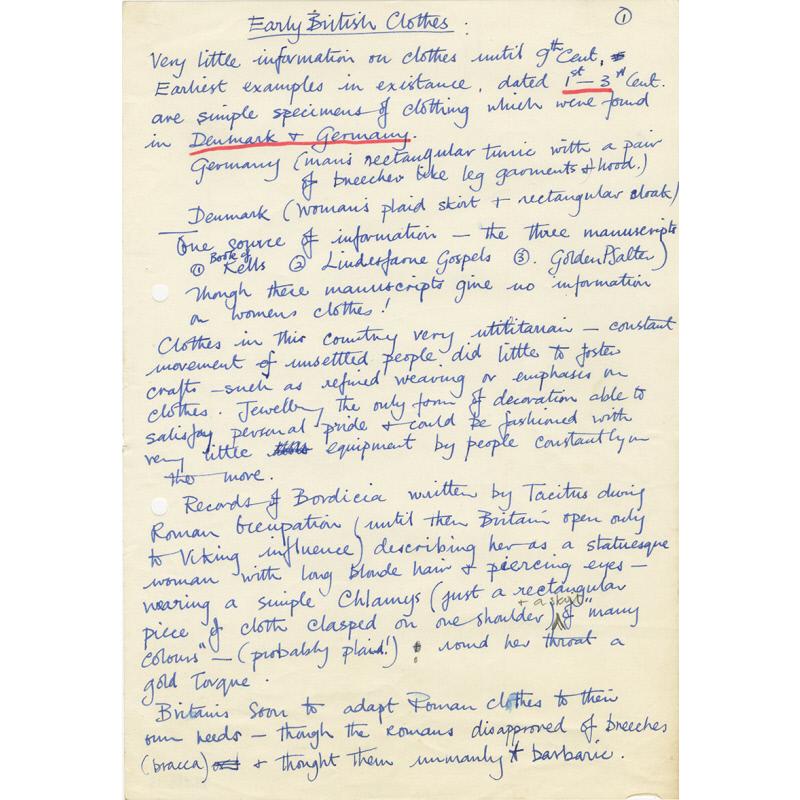 Early British Clothes :
①
Very little information on clothes until 9th Cent.
Earliest examples in existance, dated 1st – 3rd Cent.
are simple specimens of clothing which were found
in Denmark & Germany.
Germany (man's rectangular tunic with a pair
of breeches like leg garments & hood.)
Denmark (Woman's plaid skirt + rectangular cloak)
One source of information – the three manuscripts
① Book of Kells ② Lindesfarne Gospels ③. Golden PSalter)
Though these manuscripts give no information
on womens clothes!
Clothes in this country very utilitarian – constant
movement of unsettled people did little to foster
crafts – such as refined weaving or emphasis on
clothes. Jewellery the only form of decoration able to
satisfay personal pride & could be fashioned with
very little equipment by people constantly on
the move.
Records of Bordicia written by Tacitus during
Roman Occupation (until then Britain open only
to Viking influence) describing her as a statuesque
woman with long blonde hair & piercing eyes –
wearing a simple Chlamys (just a rectangular
+ a skirt
piece of cloth clasped on one shoulder) of "many
colours" – (probably plaid!) round her throat a
gold Torque.
Britains soon to adapt Roman clothes to their
own needs – though the Romans disapproved of breeches
(bracca) & thought them unmanly & barbaric.